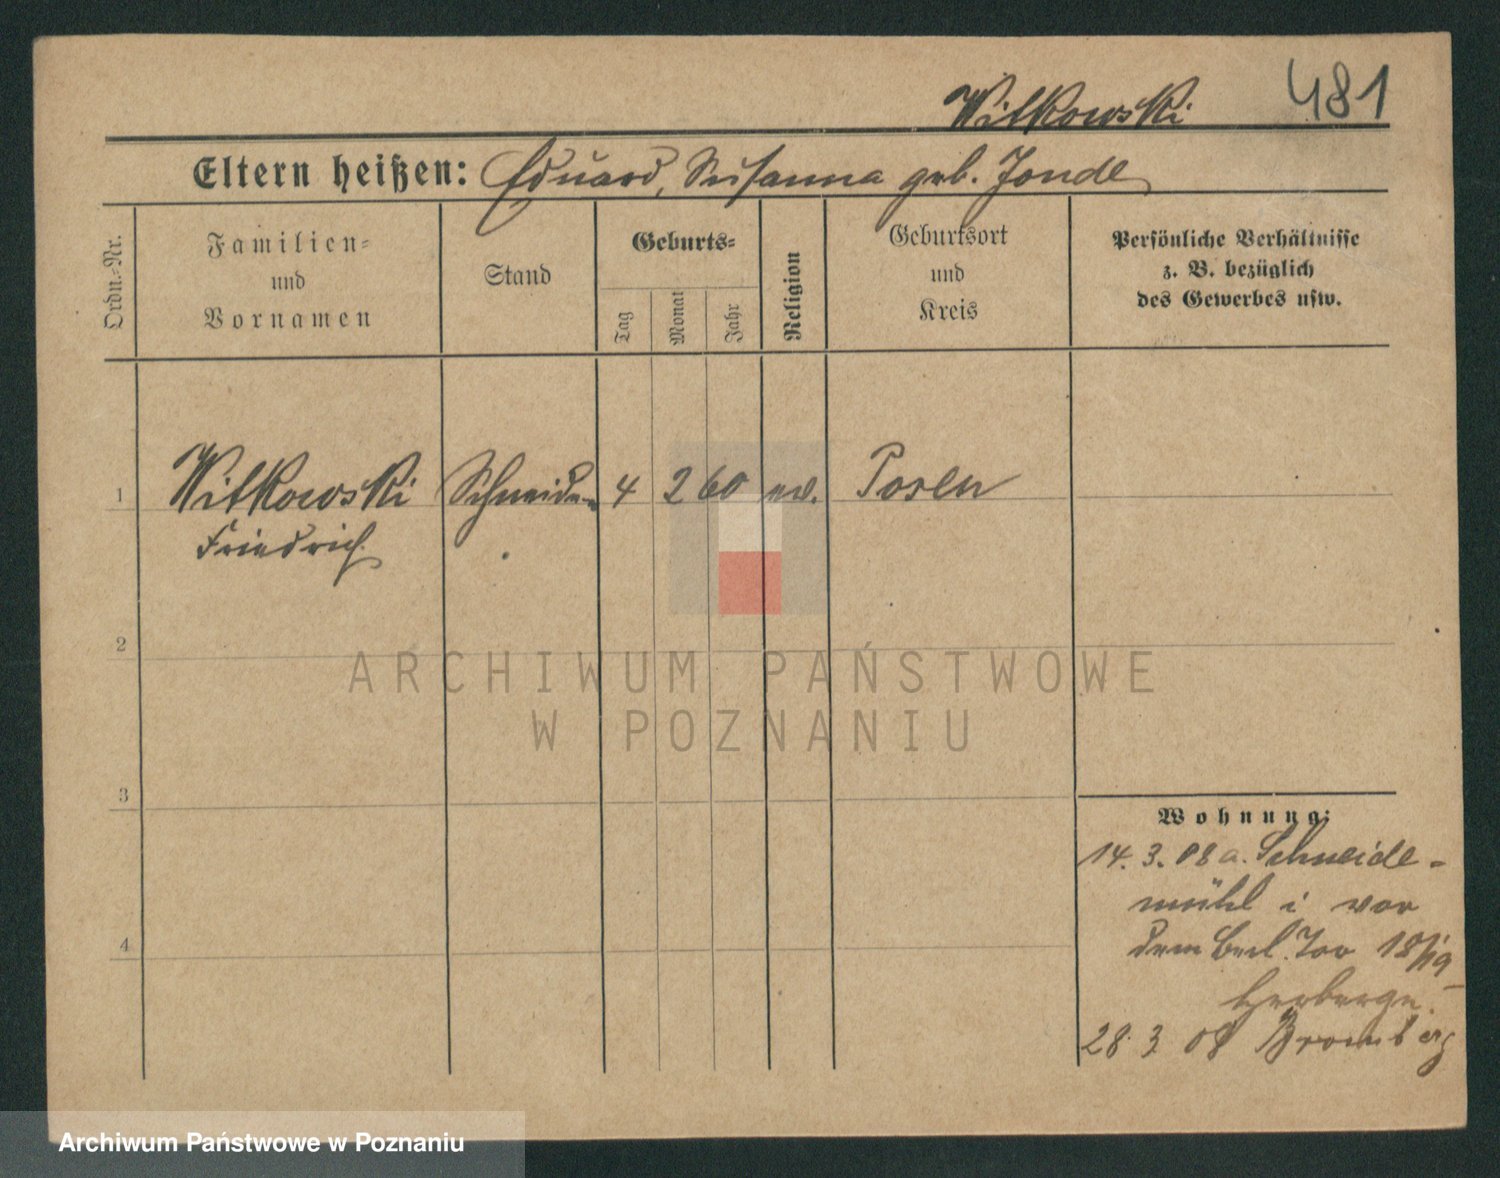 Witkowski 481
Eltern heißen: Eduard, Susanna geb. Jonde
Ordn.-Nr.
Familien- und Vornamen
Stand
Geburts-
Tag
Monat
Jahr
Religion
Geburtsort und Kreis
Persönliche Verhältnisse
z. B. bezüglich
des Gewerbes usw.
1 Witkowski Schneider 4 2 60 ev. Posen
Friedrich
2
ARCHIWUM PAŃSTWOWE
W POZNANIU
3
Wohnung:
14. 3. 08 a. Schneide-
mühl i vor
dem Berl. Tor
4
Herberge.
28. 3 08 Bromberg
Archiwum Państwowe w Poznaniu